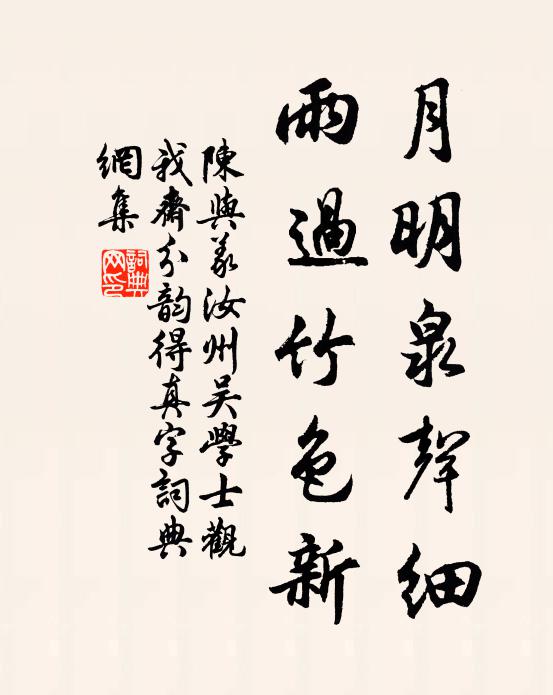 月明泉聲細
雨過竹色新
陳與義汝州吳學士觀
我齋分韵得真字詞典
網集
詞典網印